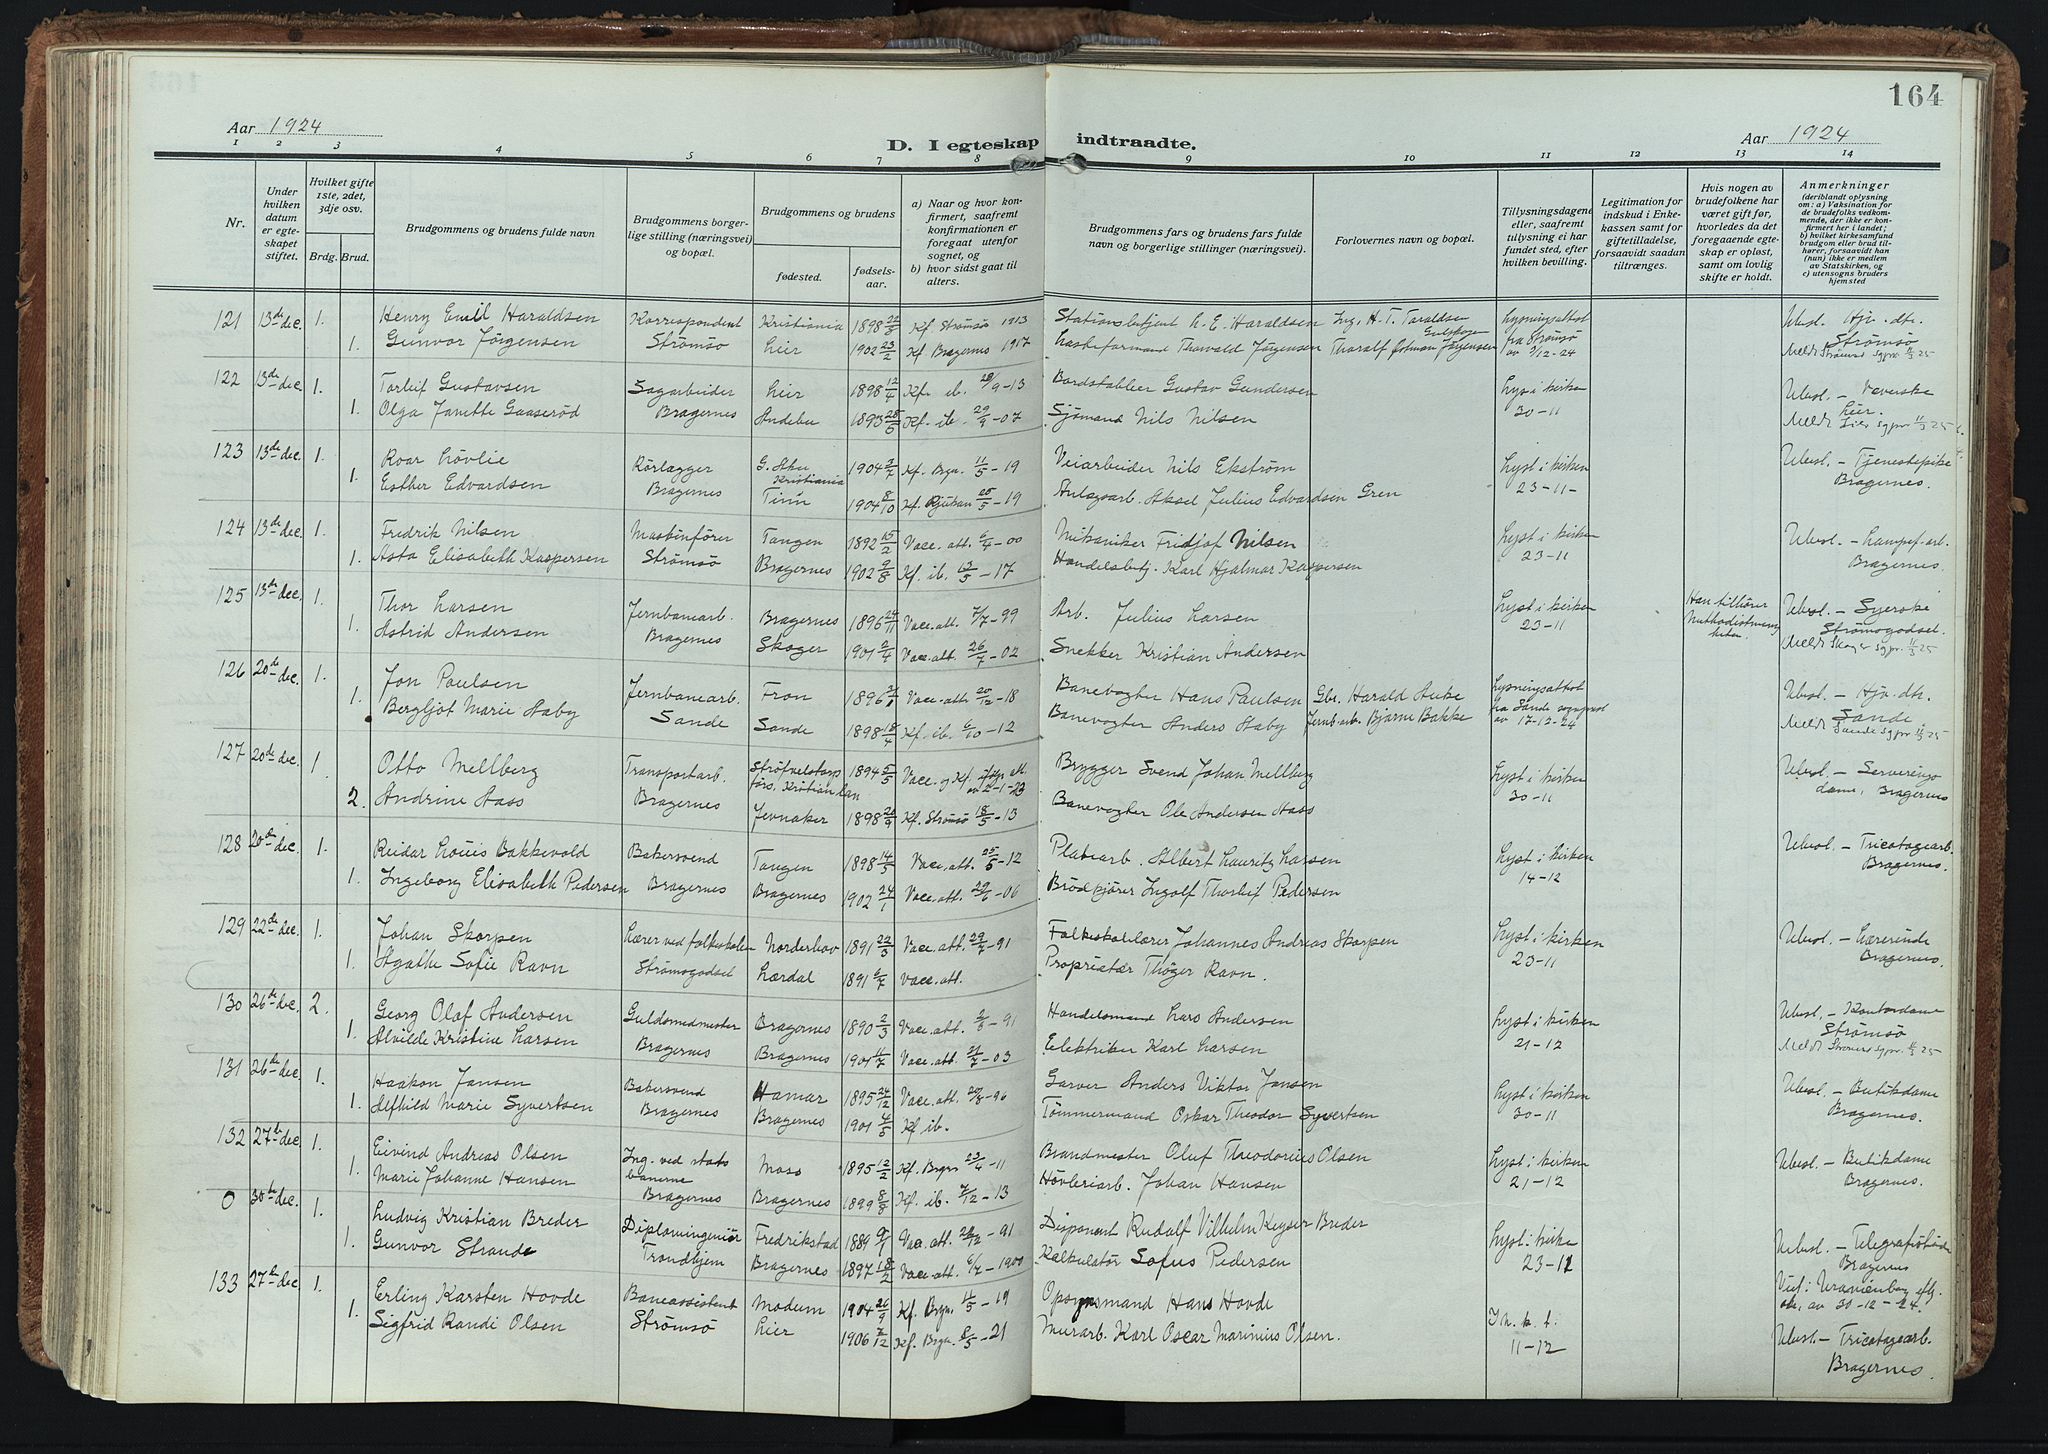 164
Aar 1924
D. I egteskap indtraadte.
Aar 1924
1 2 3 4 5 6 7 8 9 10 11 12 13 14
Nr.
Under hvilken datum er egteskapet stiftet.
Hvilket gifte 1ste, 2det, 3dje osv.
Brdg. Brud.
Brudgommens og brudens fulde navn
Brudgommens borgerlige stilling (næringsvei) og bopæl.
Brudgommens og brudens
fødested.
fødselsaar.
a) Naar og hvor konfirmert, saafremt konfirmationen er foregaat utenfor sognet, og
b) hvor sidst gaat til alters.
Brudgommens fars og brudens fars fulde navn og borgerlige stillinger (næringsvei).
Forlovernes navn og bopæl.
Tillysningsdagene eller, saafremt tillysning ei har fundet sted, efter hvilken bevilling.
Legitimation for indskud i Enkekassen samt for giftetilladelse, forsaavidt saadan tiltrænges.
Hvis nogen av brudefolkene har været gift før, hvorledes da det foregaaende egteskap er opløst, samt om lovlig skifte er holdt.
Anmerkninger
(deriblandt oplysning om: a) Vaksination for de brudefolks vedkommende, der ikke er konfirmert her i landet; b) hvilket kirkesamfund brudgom eller brud tilhører, forsaavidt han (hun) ikke er medlem av Statskirken, og c) utensogns bruders hjemsted
121 13de dec. 1. Henry Emil Haraldsen Korrespondent Kristiania 1898 22/5 Kf. Strømsø 1913 Stationsbetjent L. E. Haraldsen Ing. H. T. Taraldsen Lysningsattest Ubesl. Hjv. dtr.
1. Gunvor Jørgensen Strømsø Lier 1902 23/2 Kf. Bragernes 1917 Lasteformand Thorvald Jørgensen Tharalf Jørgensen fra Strømsø Strømsø
122 13de dec. 1. Torleif Gustavsen Sagarbeider Lier 1898 12/4 Kf. ib. 28/9-13 Bordstabler Gustav Gundersen Lyst i kirken Ubesl. – Væverske
1. Olga Janette Gaaserød Bragernes Andebu 1895 28/5 Kf. ib. 29/9-07 Sjømand Nils Nilsen 30-11 Lier.
123 13de dec. 1. Roar Løvlie Rørlægger G. Aker Kristiania 1904 2/7 Kf. Brgn. 11/5-19 Veiarbeider Nils Ekstrøm Lyst i kirken Ubesl. – Tjenestepike
1. Esther Edvardsen Bragernes Tinn 1904 8/10 Kf. Rjukan 25/5-19 Anlægsarb. Aksel Julius Edvardsen Gren 23-11- Bragernes.
124 13de dec. 1. Fredrik Nilsen Maskinfører Tangen 1892 15/2 Vacc. att. 6/4-00 Mekaniker Fridjof Nilsen Lyst i kirken Ubesl. – Lampef. arb.
1. Asta Elisabeth Kaspersen Strømsø Bragernes 1902 9/8 Kf. ib. 13/5-17 Handelsbetj. Karl Hjalmar Kaspersen 23-11 Bragernes.
125 13de dec. 1. Thor Larsen Jernbanearb. Bragernes 1896 24/11 Vacc. att. 7/7-99 Arb. Julius Larsen Lyst i kirken Han tilhører Ubesl. – Syerske
1. Astrid Andersen Bragernes Skoger 1901 2/4 Vacc. att. 26/7-02 Snekker Kristian Andersen 23-11 Strømsgodset.
126 20de dec. 1. Jon Paulsen Jernbanearb. Fron 1896 Vacc. att. 20/12-18 Banevogter Hans Paulsen Gbr. Harald Lysningsattest Ubesl. – Hjv. dtr.
1. Bergljot Marie Haby Sande Sande 1898 18/4 Kf. ib. 6/10-12 Banevogter Anders Haby Jernb. arb. Bjarne Bakke fra Sande sogneprest av 17-12-24 Sande
127 20de dec. 1. Otto Mellberg Transportarb. 1894 5/5 Vacc. og Kf. Brygger Svend Johan Mellberg Lyst i kirken Ubesl. – Serverings
2. Andrine Aass Bragernes Jevnaker 1898 20/9 Kf. Strømsø 18/5-13 Banevogter Ole Andersen Aass 30-11 dame, Bragernes
128 20de dec. 1. Reidar Louis Bakkevold Bakersvend Tangen 1898 14/5 Vacc. att. 25/5-12 Platearb. Albert Lauritz Larsen Lyst i kirken Ubesl. – Tricotagearb.
1. Ingeborg Elisabeth Pedersen Bragernes Bragernes 1902 24/1 Vacc. att. 29/6-06 Brødkjører Ingolf Thorleif Pedersen 14-12 Bragernes.
129 22de dec. 1. Johan Skorpen Lærer ved folkeskolen Norderhov 1891 22/3 Vacc. att. 29/7-91 Folkeskolelærer Johannes Andreas Skorpen Lyst i kirken Ubesl. – Lærerinde
1. Agathe Sofie Ravn Strømsgodset Lærdal 1891 6/7 Vacc. att. Proprietær Thøger Ravn. 23-11 Bragernes.
130 26de dec. 2. Georg Olaf Andersen Guldsmedmester Bragernes 1890 2/3 Vacc. att. 2/8-91 Handelsmand Lars Andersen Lyst i kirken Ubesl. – Kontordame
1. Alvilde Kristine Larsen Bragernes Bragernes 1901 11/7 Vacc. att. 21/7-03 Elektriker Karl Larsen 21-12 Strømsø
131 26de dec. 1. Haakon Jansen Bakersvend Hamar 1895 24/12 Vacc. att. 20/8-96 Garver Anders Viktor Jansen Lyst i kirken Ubesl. – Butikdame
1. Alfhild Marie Syvertsen Bragernes Bragernes 1901 4/5 Kf. ib. Tømmermand Oskar Theodor Syvertsen 30-11 Bragernes.
132 27de dec. 1. Eivind Andreas Olsen Ing. ved stats Moss 1895 12/2 Kf. Brgn 23/4-11 Brandmester Oluf Theodorius Olsen Lyst i kirken Ubesl. – Butikdame
1. Marie Johanne Hansen banerne Bragernes Bragernes 1899 8/8 Kf. ib. 7/12-13 Høvleriarb. Johan Hansen 21-12 Bragernes.
0 30te dec. 1. Ludvig Kristian Breder Diplomingeniør Fredrikstad 1889 9/1 Vacc. att. 28/12-91 Disponent Rudolf Vilhelm Keyser Breder Lyst i kirken Ubesl. – Telegrafistinde
1. Gunvor Strande Trondhjem Bragernes 1897 18/2 Vacc. att. 6/7-1900 Kalkulatør Sofus Pedersen 23-11 Bragernes
Viet i Uranienborg av 30-12-24.
133 27de dec. 1. Erling Karsten Hovde Baneassistent Modum 1904 26/9 Kf. Brgn. 11/5-19 Opsynsmand Hans Hovde
1. Sigfrid Randi Olsen Strømsø Lier 1906 7/12 Kf. Brgn. 8/5-21 Murarb. Karl Oscar Marinius Olsen. 11-12 Ubesl. – Tricotagearb.
Bragernes.